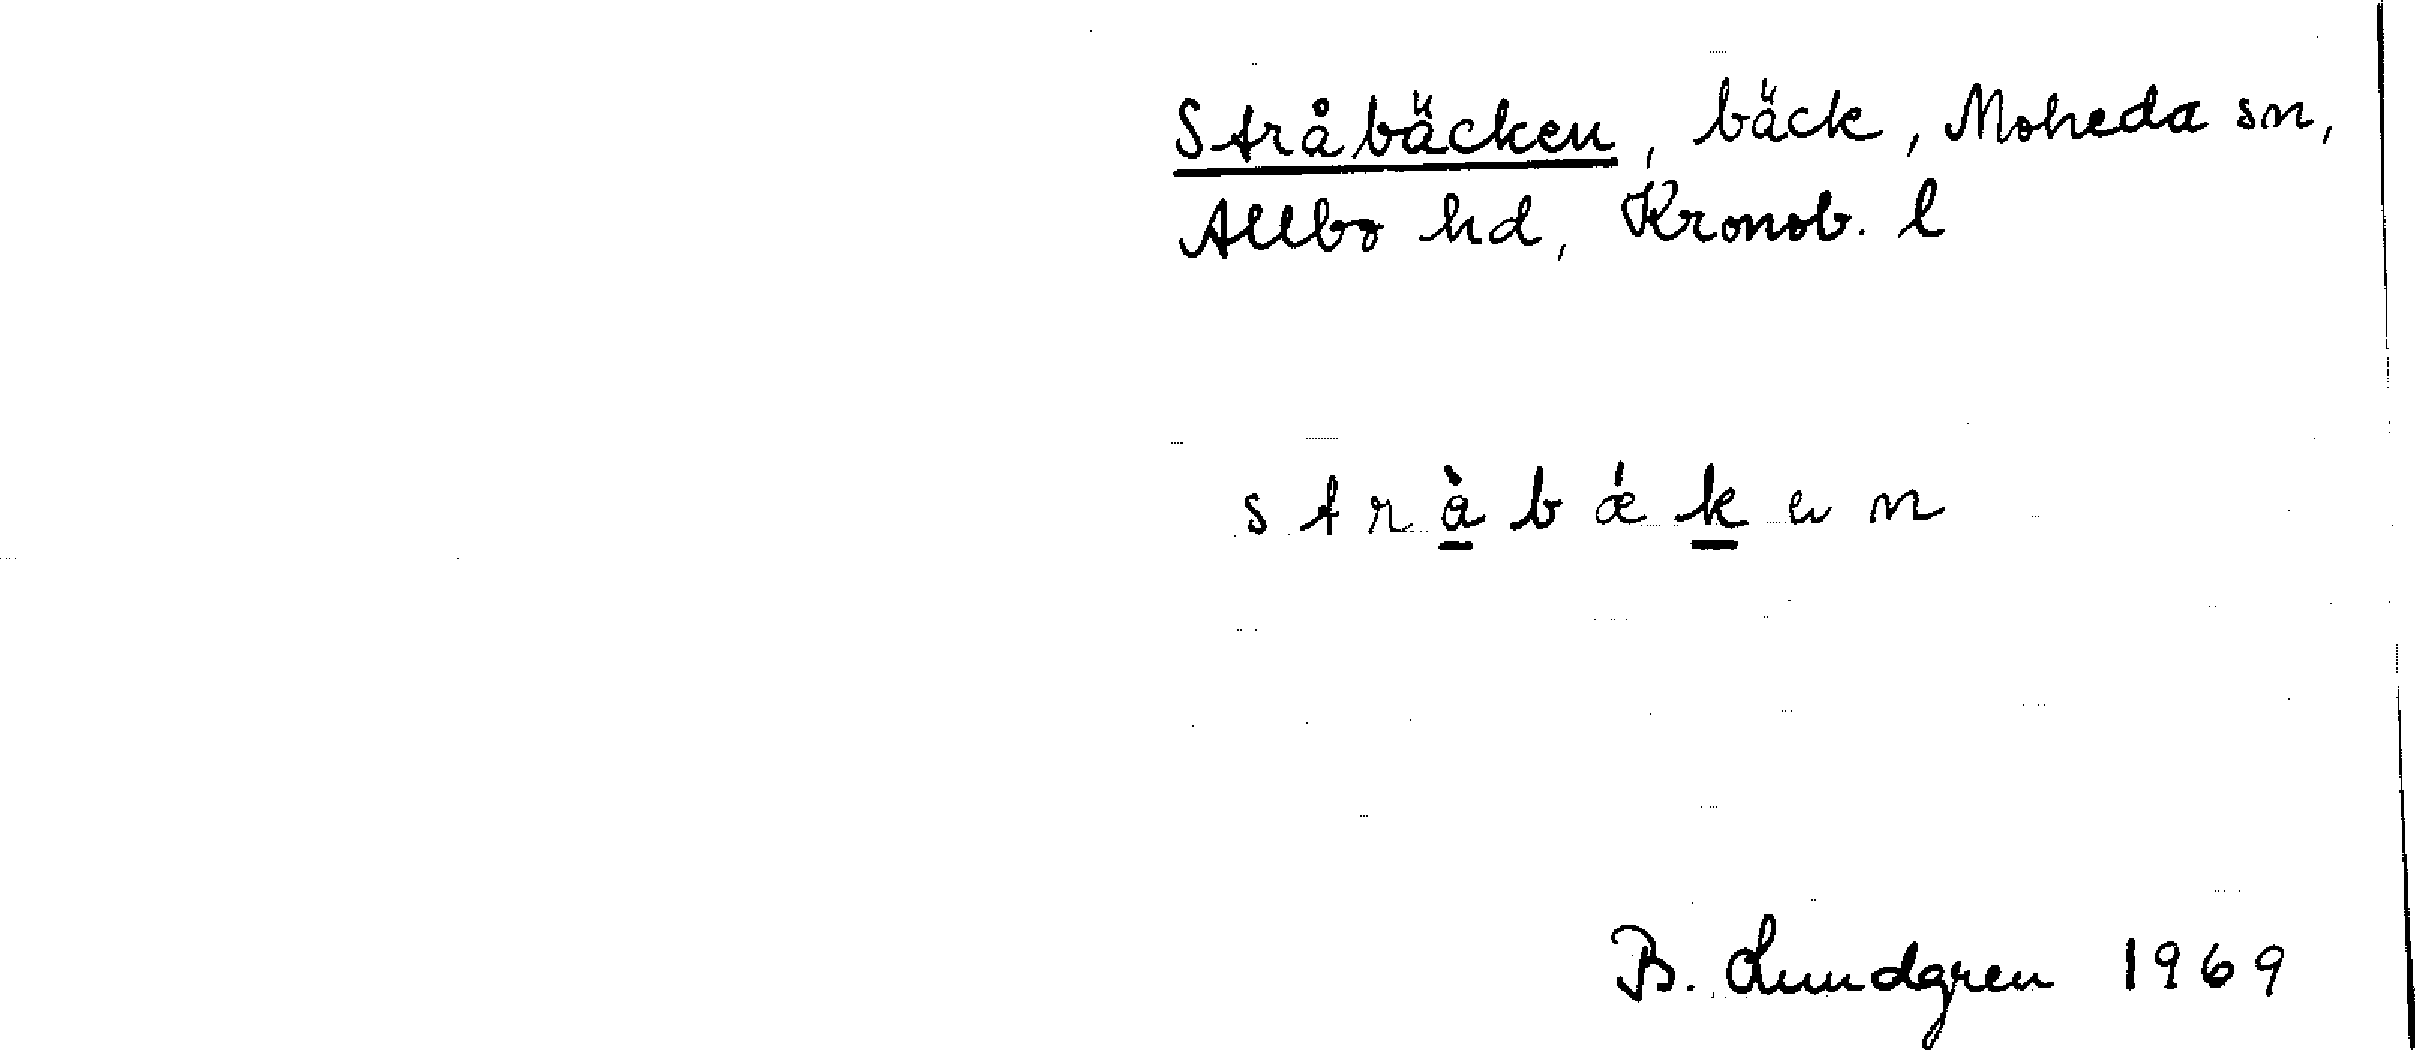 Stråbäcken, bäck, Moheda sn,
Allbo hd, Kronob. l
s t r å̀ b ǽ k e n
B. Lundgren 1969